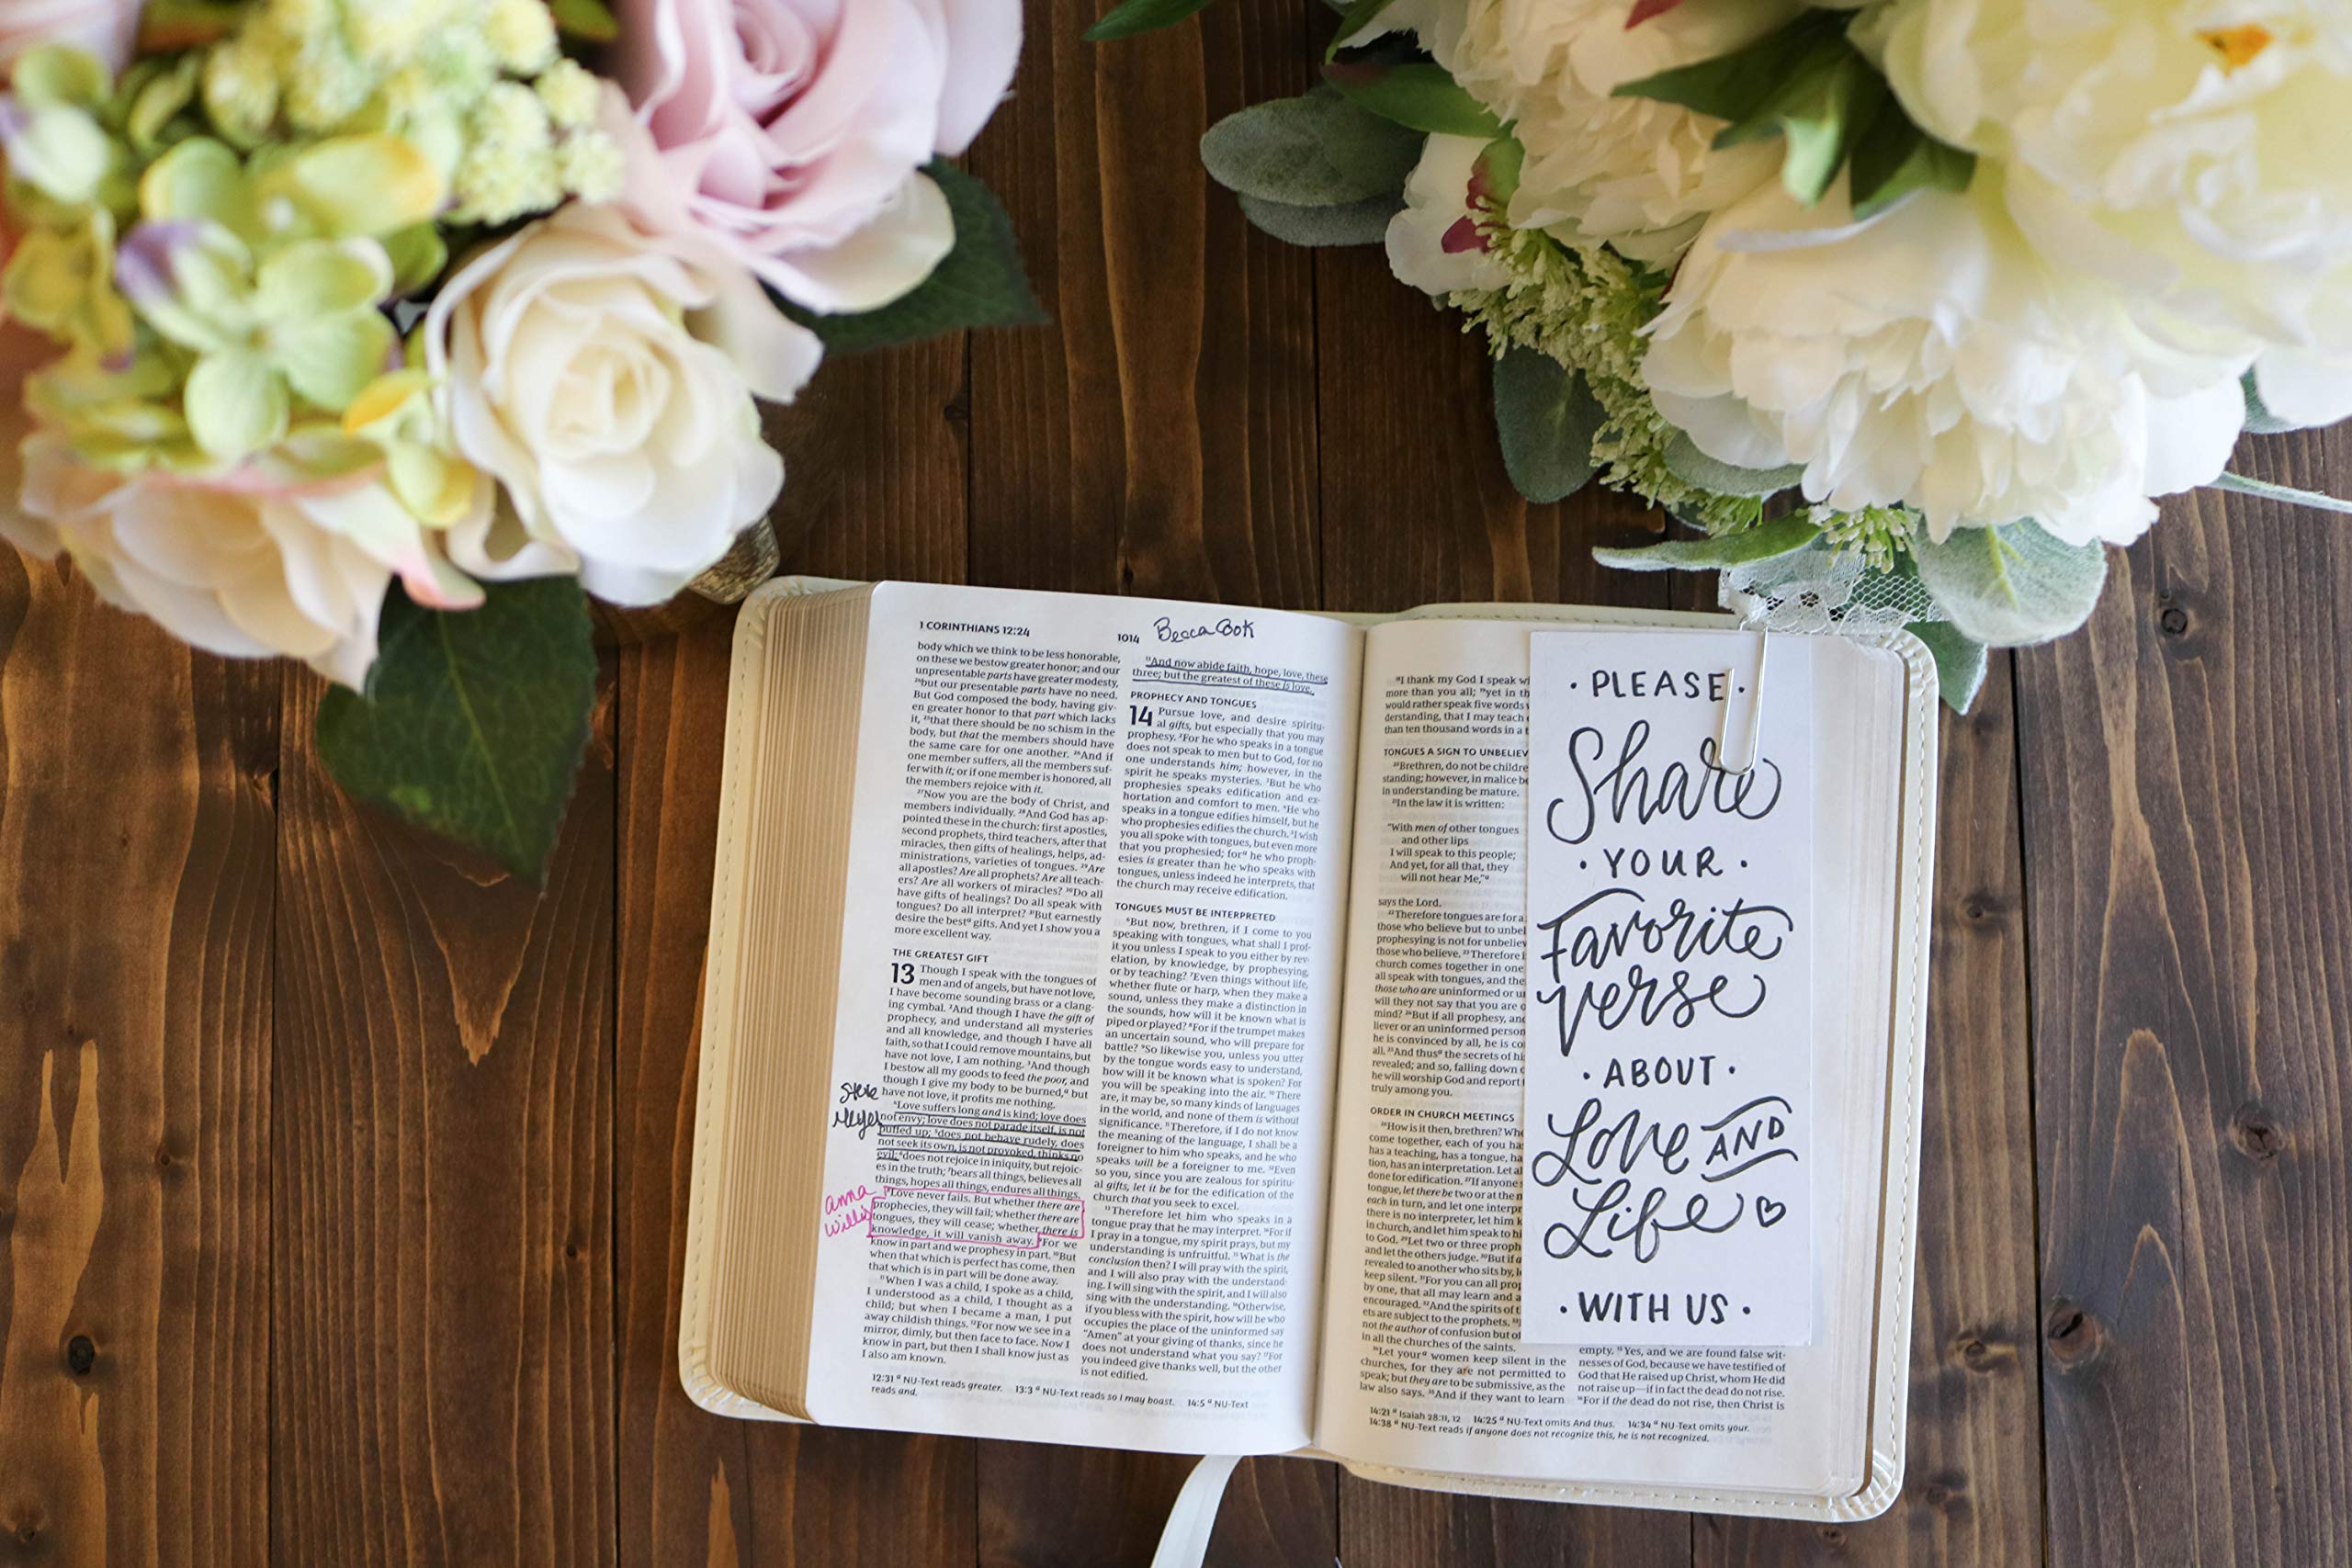 1 CORINTHIANS 12:24
1014
Becca Cook
body which we think to be less honorable,
on these we bestow greater honor; and our
unpresentable parts have greater modesty,
²⁴but our presentable parts have no need.
But God composed the body, having giv-
en greater honor to that part which lacks
it, ²⁵that there should be no schism in the
body, but that the members should have
the same care for one another. ²⁶And if
one member suffers, all the members suf-
fer with it; or if one member is honored, all
the members rejoice with it.
²⁷Now you are the body of Christ, and
members individually. ²⁸And God has ap-
pointed these in the church: first apostles,
second prophets, third teachers, after that
miracles, then gifts of healings, helps, ad-
ministrations, varieties of tongues. ²⁹Are
all apostles? Are all prophets? Are all teach-
ers? Are all workers of miracles? ³⁰Do all
have gifts of healings? Do all speak with
tongues? Do all interpret? ³¹But earnestly
desire the bestᵃ gifts. And yet I show you a
more excellent way.
THE GREATEST GIFT
13 Though I speak with the tongues of
men and of angels, but have not love,
I have become sounding brass or a clang-
ing cymbal. ²And though I have the gift of
prophecy, and understand all mysteries
and all knowledge, and though I have all
faith, so that I could remove mountains, but
have not love, I am nothing. ³And though
I bestow all my goods to feed the poor, and
though I give my body to be burned,ᵃ but
have not love, it profits me nothing.
⁴Love suffers long and is kind; love does
not envy; love does not parade itself, is not
puffed up; ⁵does not behave rudely, does
not seek its own, is not provoked, thinks no
evil; ⁶does not rejoice in iniquity, but rejoic-
es in the truth; ⁷bears all things, believes all
things, hopes all things, endures all things.
⁸Love never fails. But whether there are
prophecies, they will fail; whether there are
tongues, they will cease; whether there is
knowledge, it will vanish away. ⁹For we
know in part and we prophesy in part. ¹⁰But
when that which is perfect has come, then
that which is in part will be done away.
¹¹When I was a child, I spoke as a child,
I understood as a child, I thought as a
child; but when I became a man, I put
away childish things. ¹²For now we see in a
mirror, dimly, but then face to face. Now I
know in part, but then I shall know just as
I also am known.
Meyer
anna
willis
¹³And now abide faith, hope, love, these
three; but the greatest of these is love.
PROPHECY AND TONGUES
14 Pursue love, and desire spiritu-
al gifts, but especially that you may
prophesy. ²For he who speaks in a tongue
does not speak to men but to God, for no
one understands him; however, in the
spirit he speaks mysteries. ³But he who
prophesies speaks edification and ex-
hortation and comfort to men. ⁴He who
speaks in a tongue edifies himself, but he
who prophesies edifies the church. ⁵I wish
you all spoke with tongues, but even more
that you prophesied; forᵃ he who proph-
esies is greater than he who speaks with
tongues, unless indeed he interprets, that
the church may receive edification.
TONGUES MUST BE INTERPRETED
⁶But now, brethren, if I come to you
speaking with tongues, what shall I prof-
it you unless I speak to you either by rev-
elation, by knowledge, by prophesying,
or by teaching? ⁷Even things without life,
whether flute or harp, when they make a
sound, unless they make a distinction in
the sounds, how will it be known what is
piped or played? ⁸For if the trumpet makes
an uncertain sound, who will prepare for
battle? ⁹So likewise you, unless you utter
by the tongue words easy to understand,
how will it be known what is spoken? For
you will be speaking into the air. ¹⁰There
are, it may be, so many kinds of languages
in the world, and none of them is without
significance. ¹¹Therefore, if I do not know
the meaning of the language, I shall be a
foreigner to him who speaks, and he who
speaks will be a foreigner to me. ¹²Even
so you, since you are zealous for spiritu-
al gifts, let it be for the edification of the
church that you seek to excel.
¹³Therefore let him who speaks in a
tongue pray that he may interpret. ¹⁴For if
I pray in a tongue, my spirit prays, but my
understanding is unfruitful. ¹⁵What is the
conclusion then? I will pray with the spirit,
and I will also pray with the understand-
ing. I will sing with the spirit, and I will also
sing with the understanding. ¹⁶Otherwise,
if you bless with the spirit, how will he who
occupies the place of the uninformed say
"Amen" at your giving of thanks, since he
does not understand what you say? ¹⁷For
you indeed give thanks well, but the other
is not edified.
12:31 ᵃ NU-Text reads greater. 13:3 ᵃ NU-Text reads so I may boast. 14:5 ᵃ NU-Text
reads and.
¹⁸I thank my God I speak
more than you all; ¹⁹yet in
would rather speak five words
derstanding, that I may teach
than ten thousand words in a
TONGUES A SIGN TO UNBELIEV
²⁰Brethren, do not be
standing; however, in malice
in understanding be mature.
²¹In the law it is written:
"With men of other tongues
and other lips
I will speak to this people;
And yet, for all that, they
will not hear Me,"ᵃ
says the Lord.
²²Therefore tongues are for a
those who believe but to
prophesying is not for
those who believe. ²³Therefore
church comes together in one
all speak with tongues, and
those who are uninformed or
will they not say that you are
mind? ²⁴But if all prophesy,
liever or an uninformed person
he is convinced by all, he is
all. ²⁵And thusᵃ the secrets of
revealed; and so, falling down
he will worship God and report
truly among you.
ORDER IN CHURCH MEETINGS
²⁶How is it then, brethren?
come together, each of you
has a teaching, has a tongue,
tion, has an interpretation. Let
done for edification. ²⁷If anyone
tongue, let there be two or at the
each in turn, and let one
there is no interpreter, let him
in church, and let him speak to
to God. ²⁹Let two or three
and let the others judge. ³⁰But if
revealed to another who sits by,
keep silent. ³¹For you can all
by one, that all may learn and
encouraged. ³²And the spirits of
ets are subject to the prophets.
not the author of confusion but
in all the churches of the saints.
³⁴Let yourᵃ women keep silent in the
churches, for they are not permitted to
speak; but they are to be submissive, as the
law also says. ³⁵And if they want to learn
empty. ¹⁵Yes, and we are found false wit-
nesses of God, because we have testified of
God that He raised up Christ, whom He did
not raise up—if in fact the dead do not rise.
¹⁶For if the dead do not rise, then Christ is
14:21 ᵃ Isaiah 28:11, 12 14:25 ᵃ NU-Text omits And thus. 14:34 ᵃ NU-Text omits your.
14:38 ᵃ NU-Text reads if anyone does not recognize this, he is not recognized.
· PLEASE ·
Share
· YOUR ·
Favorite
verse
· ABOUT ·
Love AND
Life ♡
· WITH US ·